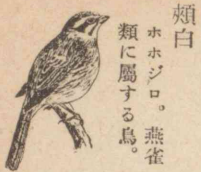 頰白
ホホジロ。燕雀
類に屬する鳥。